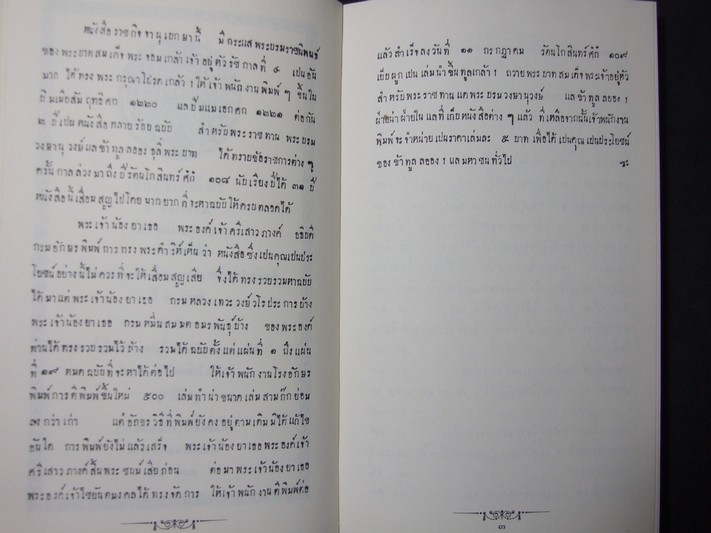 หนังสือราชกิจจานุเบกษานี้ มีกระแสพระบรมราชนิพนธ์
ของพระบาทสมเด็จพระจอมเกล้าเจ้าอยู่หัวรัชกาลที่ ๔ เปนอัน
มาก ได้ทรงพระกรุณาโปรดเกล้า ฯ ให้เจ้าพนักงานพิมพ์ ๆ ขึ้นใน
ปีมเมียสัมฤทธิศก ๑๒๒๐ แลปีมแมเอกศก ๑๒๒๑ ต่อกัน
๒ ปีเปนหนังสือหลายร้อยฉบับ สำหรับพระราชทาน พระบรม
วงษานุวงษ์แลข้าทูลลอองธุลีพระบาท ให้ทราบข้อราชการต่าง ๆ
ครั้นกาลล่วงมาถึงปีรัตนโกสินทร์ศก ๑๐๘ นับเรียงปีได้ ๓๑ ปี
หนังสือนี้เสื่อมสูญไปโดยมากยากที่จะหาฉบับให้ครบตลอดได้
พระเจ้าน้องยาเธอ พระองค์เจ้าศรีเสาวภางค์ อธิบดี
กรมอักษรพิมพ์การทรงพระดำริห์เห็นว่า หนังสือซึ่งเปนคุณเปนประ
โยชน์อย่างนี้ไม่ควรที่จะให้เสื่อมสูญเสีย จึ่งได้ทรงรวบรวมหาฉบับ
ได้มาแต่พระเจ้าน้องยาเธอ กรมหลวงเทวะวงษ์วโรประการบ้าง
พระเจ้าน้องยาเธอ กรมหมื่นสมมตอมรพันธุ์บ้าง ของพระองค์
ท่านได้ทรงรวบรวมไว้บ้าง รวมได้ฉบับตั้งแต่แผ่นที่ ๑ ถึงแผ่น
ที่ ๑๙ หมดฉบับที่จะหาได้ต่อไป ให้เจ้าพนักงานโรงอักษร
พิมพ์การตีพิมพ์ขึ้นใหม่ ๕๐๐ เล่มทำน่าขนาดเล่มสามก๊กย่อม
ลงกว่าเก่า แต่อักขรวิธีที่พิมพ์ยังคงอยู่ตามเดิมมิได้แก้ไข
อันใด การพิมพ์ยังไม่แล้วเสร็จ พระเจ้าน้องยาเธอพระองค์เจ้า
ศรีเสาวภางค์สิ้นพระชนม์เสียก่อน ต่อมาพระเจ้าน้องยาเธอ
พระองค์เจ้าไชยันตมงคลได้ทรงจัดการ ให้เจ้าพนักงานตีพิมพ์ต่อ
แล้วสำเร็จลงวันที่ ๑๑ กรกฎาคม รัตนโกสินทร์ศก ๑๐๙
เย็บผูกเปนเล่มนำขึ้นทูลเกล้า ฯ ถวายพระบาทสมเด็จพระเจ้าอยู่หัว
สำหรับพระราชทานแด่พระบรมวงษานุวงษ์ แลข้าทูลลออง ฯ
ฝ่ายน่าฝ่ายในแลที่เก็บหนังสือต่าง ๆ แล้ว ที่เหลือจากนั้นเจ้าพนักงาน
พิมพ์จะจำหน่ายเปนราคาเล่มละ ๕ บาท เพื่อได้เปนคุณเปนประโยชน์
ของข้าทูลลออง ฯ แลมหาชนทั่วไป ๚ะ
๓